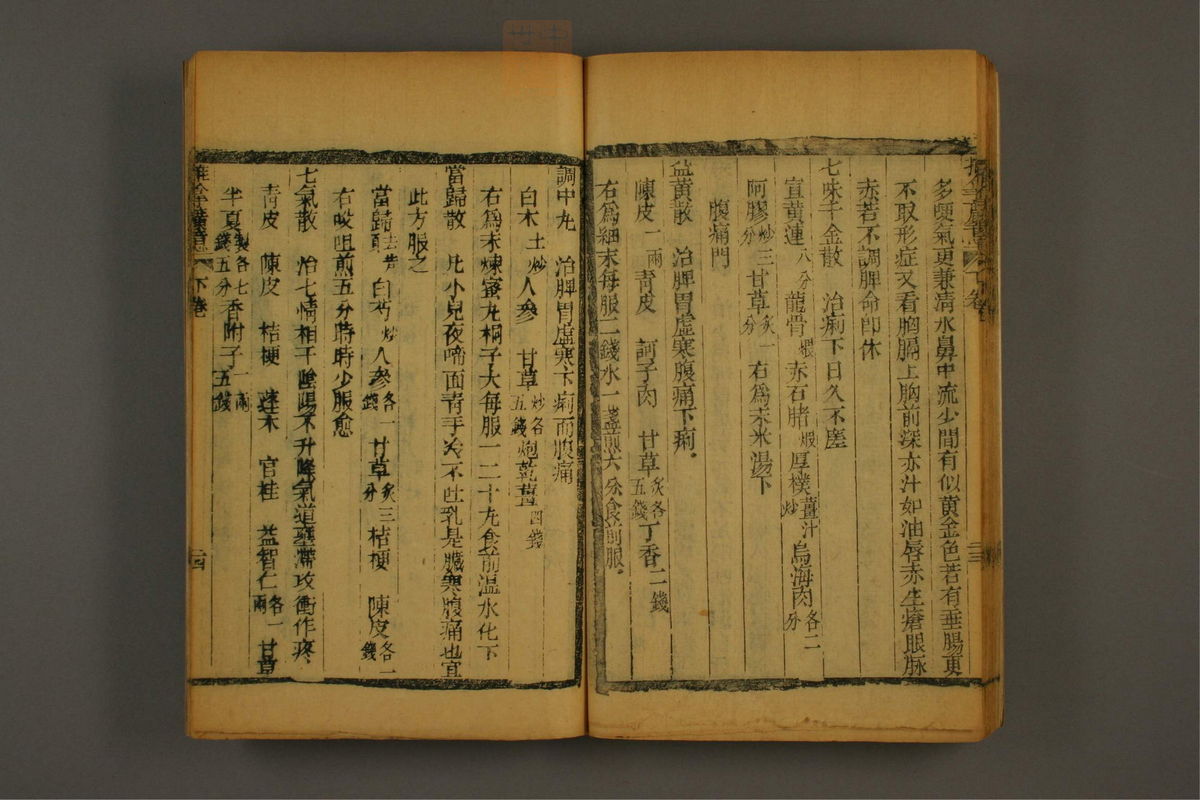 多要氣更兼清水鼻中流少間有似黄金色若有垂腸更
不取形症又看胸膈上胸前深亦汁如油唇赤生瘡眼脉
赤若不調脾命即休
七味千金散 治痢下日久不瘥
宣黄連八分 龍骨煨 赤石脂煅 厚樸薑汁炒 烏海肉各二分
阿膠炒三分 甘草炙一分 右爲末米湯下
腹痛門
益黄散 治脾胃虛寒腹痛下痢
陳皮一兩 青皮 訶子肉 甘草炙各五錢 丁香二錢
右爲細末每服二錢水一盞煎六分食前服
調中丸 治脾胃虛寒下痢而腹痛
白木土炒 人參 甘草炒各五錢 炮乾薑四錢
右爲末煉蜜丸桐子大每服一二十丸食前溫水化下
當歸散 凡小兒夜啼面青手冷不吐乳是臟寒腹痛也宜
此方服之
當歸去 白芍炒 人參各一錢 甘草炙三分 桔梗 陳皮各一錢
右㕮咀煎五分時時少服愈
七氣散 治七情相干陰陽不升降氣道壅滯攻衝作疼
青皮 陳皮 桔梗 蓬木 官桂 益智仁各一兩 甘草
半夏製各七錢五分 香附子一兩五錢
下卷 二四